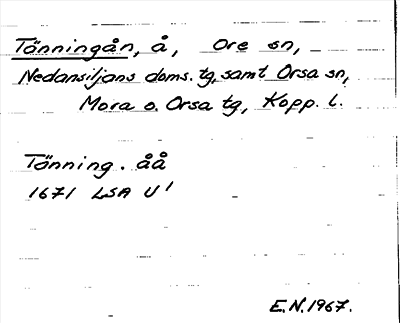 Tänningån, å, Ore sn,
Nedansiljans doms. tg, samt Orsa sn,
Mora o. Orsa tg, Kopp. l.
Tänning. åå
1671 LSA U 1
E.N. 1967.